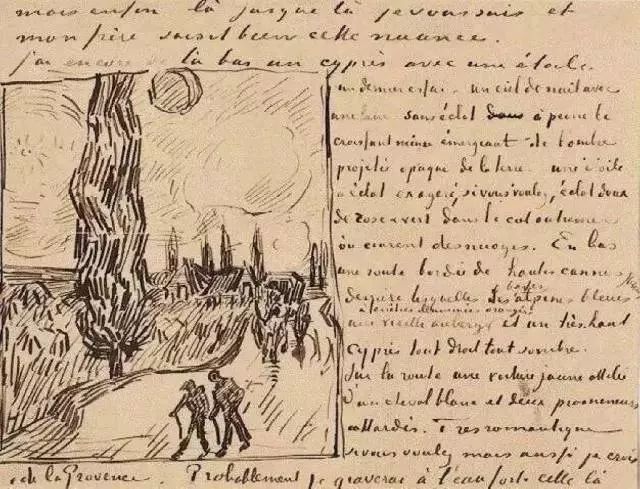 mais enfin là jusque là je vous sais et
mon frère saisit bien cette nuance.
J'ai encore de là bas un cyprès avec une étoile
un dernier essai – un ciel de nuit avec
une lune sans éclat à peine le
croissant mince émergeant de l'ombre
projetée opaque de la terre – une étoile
à éclat exageré, si vous voulez, éclat doux
de rose & vert dans le ciel outremer
où courent des nuages. En bas
une route bordée de hautes cannes jaunes
derrière lesquelles les basses alpines bleues
à fenêtres illuminées orangée
une vieille auberge et un très haut
cyprès tout droit tout sombre.
Sur la route une voiture jaune attelée
d'un cheval blanc et deux promeneurs
attardés. Très romantique
si vous voulez mais aussi je crois
de la Provence. Probablement je graverai à l'eau forte celle là